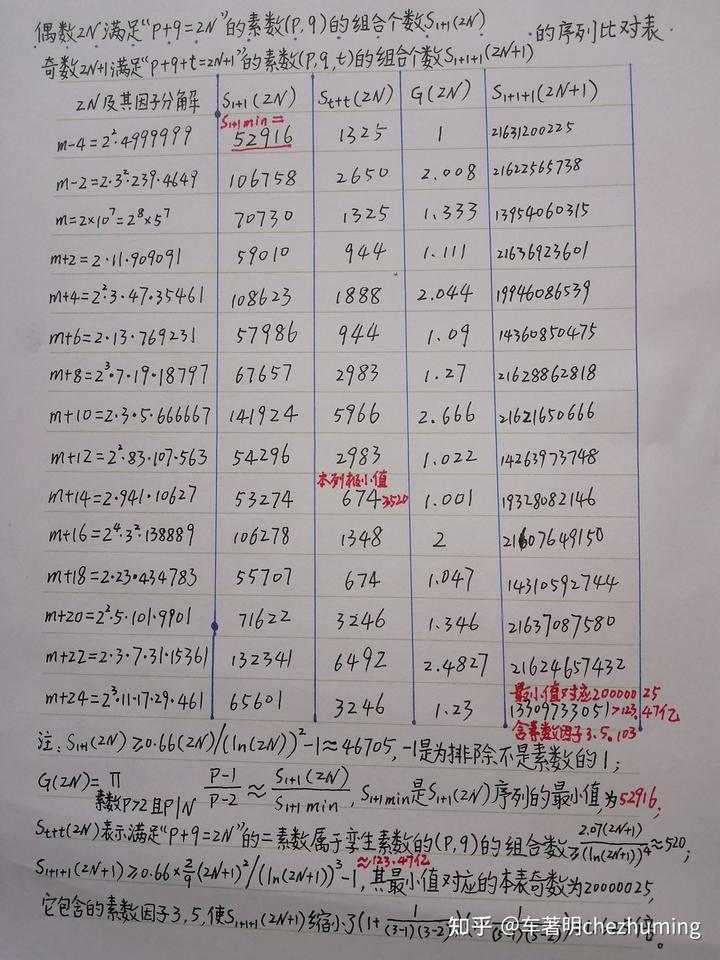 偶数2N满足“p+q=2N”的素数(p,q)的组合个数S₁₊₁(2N)
的序列比对表
奇数2N+1满足“p+q+t=2N+1”的素数(p,q,t)的组合个数S₁₊₁₊₁(2N+1)
2N及其因子分解 S₁₊₁(2N) Sₜ₊ₜ(2N) G(2N) S₁₊₁₊₁(2N+1)
S₁₊₁min=
m-4=2²·4999999 52916 1325 1 21631200225
m-2=2·3²·239·4649 106758 2650 2.008 21622565738
m=2×10⁷=2⁸×5⁷ 70730 1325 1.333 13954060315
m+2=2·11·909091 59010 944 1.111 21636923601
m+4=2²·3·47·35461 108623 1888 2.044 19946086539
m+6=2·13·769231 57986 944 1.09 14360850475
m+8=2³·7·19·18797 67657 2983 1.27 21628862818
m+10=2·3·5·666667 141924 5966 2.666 21621650666
m+12=2²·83·107·563 54296 2983 1.022 14263973748
本列极小值
m+14=2·941·10627 53274 674>520 1.001 19328082146
m+16=2⁴·3²·138889 106278 1348 2 21607649150
m+18=2·23·434783 55707 674 1.047 14310592744
m+20=2²·5·101·9901 71622 3246 1.346 21637087580
m+22=2·3·7·31·15361 132341 6492 2.4827 21624657432
最小值对应20000025
m+24=2³·11·17·29·461 65601 3246 1.23 13309733051>123.47亿
含素数因子3.5.103
注: S₁₊₁(2N)≥0.66(2N)/(ln(2N))²-1≈46705, -1是为排除不是素数的1;
G(2N)=∏ (p-1)/(p-2)≈S₁₊₁(2N)/S₁₊₁min, S₁₊₁min是S₁₊₁(2N)序列的最小值,为52916;
素数P>2且P|N
Sₜ₊ₜ(2N)表示满足“p+q=2N”的二素数属于孪生素数的(p,q)的组合数≥2.07(2N+1)/(ln(2N+1))⁴≈520;
≈123.47亿
S₁₊₁₊₁(2N+1)≥0.66×2/9(2N+1)²/(ln(2N+1))³-1, 其最小值对应的本表奇数为20000025,
它包含的素数因子3,5,使S₁₊₁₊₁(2N+1)缩小了(1+1/(3-1)(3-2)
知乎 @车著明chezhuming